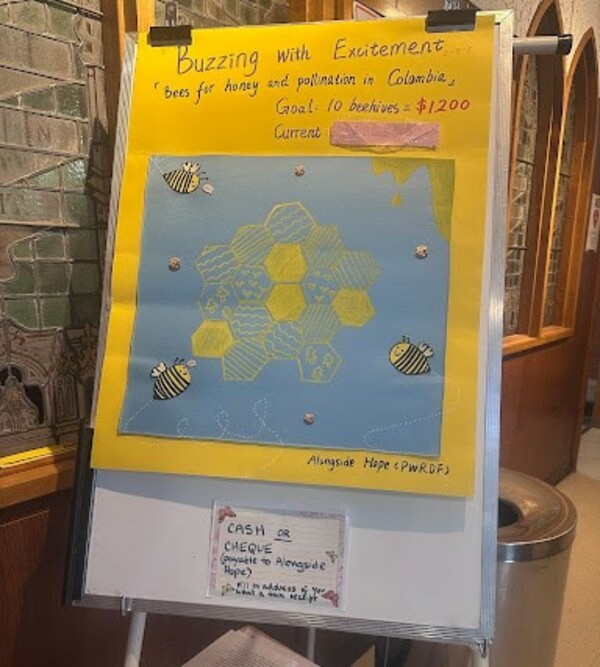 Buzzing with Excitement
「Bees for honey and pollination in Colombia」
Goal: 10 beehives = $1200
Current
Alongside Hope (PWRDF)
CASH OR
CHEQUE
(payable to Alongside
Hope)
Fill in address if you
want a tax receipt